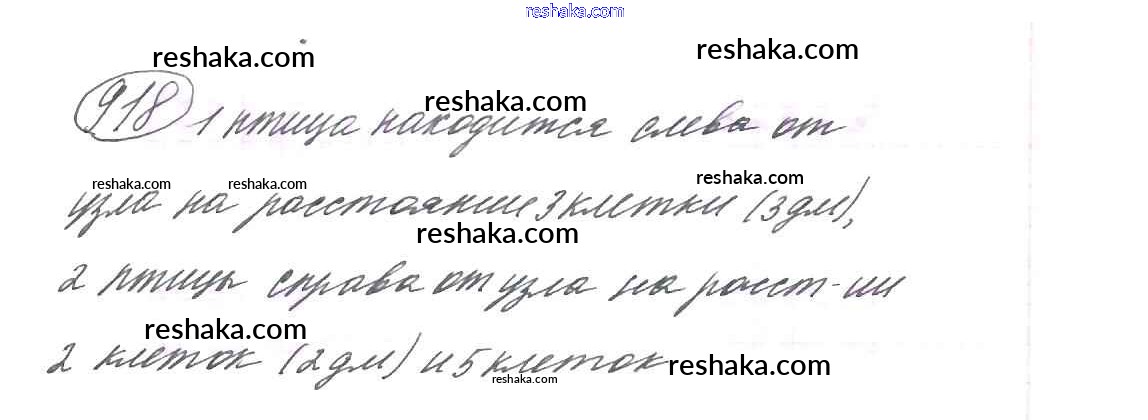 reshaka.com
reshaka.com reshaka.com
reshaka.com
918 1 птица находится слева от
reshaka.com reshaka.com reshaka.com
узла на расстоянии 3 клетки (3 дм),
reshaka.com
2 птицы справа от узла на расст-ии
reshaka.com
2 клеток (2 дм) и 5 клеток reshaka.com
reshaka.com